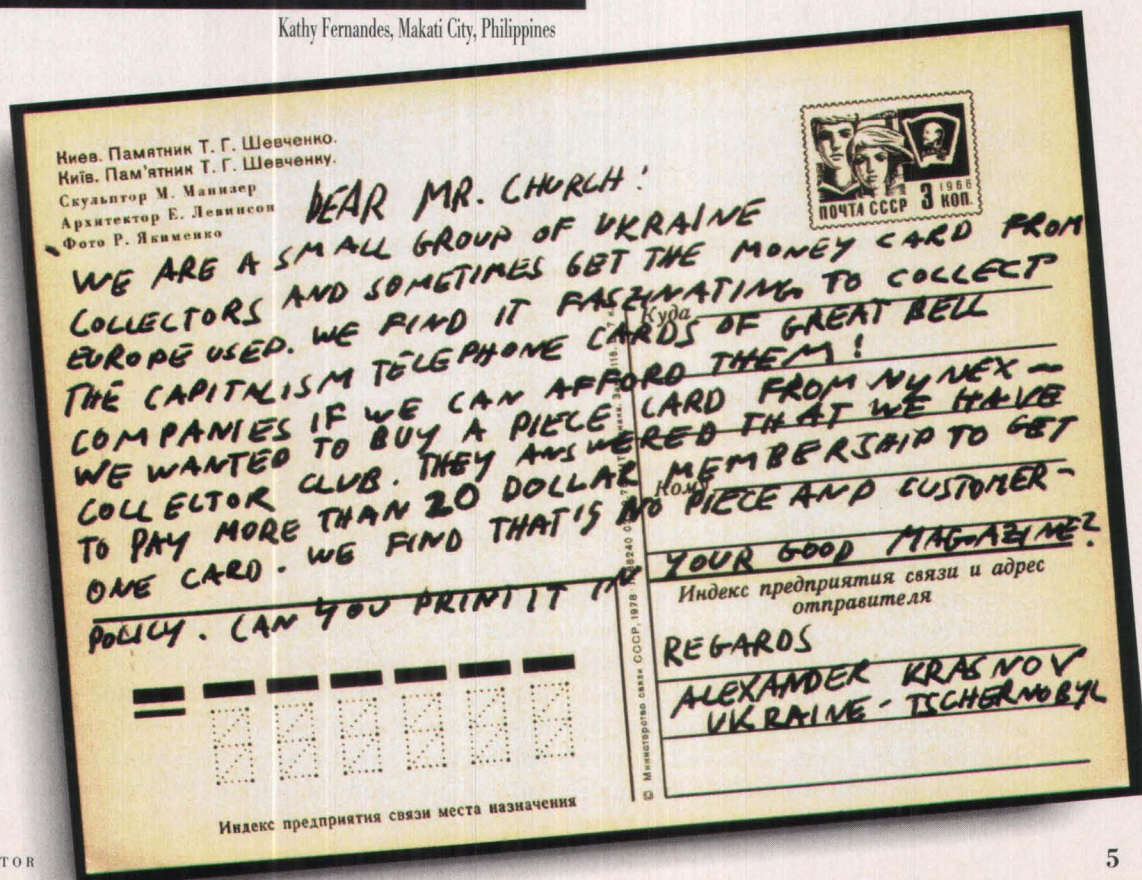 Kathy Fernandes, Makati City, Philippines
Киев. Памятник Т. Г. Шевченко.
Київ. Пам'ятник Т. Г. Шевченку.
Скульптор М. Манизер
Архитектор Е. Левинсон
Фото Р. Якименко
ПОЧТА СССР 3 КОП.
1966
DEAR MR. CHURCH!
WE ARE A SMALL GROUP OF UKRAINE
COLLECTORS AND SOMETIMES GET THE MONEY CARD FROM
EUROPE USED. WE FIND IT FASZINATING TO COLLECT
THE CAPITALISM TELEPHONE CARDS OF GREAT BELL
COMPANIES IF WE CAN AFFORD THEM!
WE WANTED TO BUY A PIECE CARD FROM NYNEX-
COLLECTOR CLUB. THEY ANSWERED THAT WE HAVE
TO PAY MORE THAN 20 DOLLAR MEMBERSHIP TO GET
ONE CARD. WE FIND THAT'S NO PIECE AND CUSTOMER-
POLICY. CAN YOU PRINT IT IN
YOUR GOOD MAGAZINE?
REGARDS
ALEXANDER KRASNOV
UKRAINE - TSCHERNOBYL
Куда
Кому
Индекс предприятия связи и адрес
отправителя
© Министерство связи СССР, 1978
Индекс предприятия связи места назначения
TOR
5